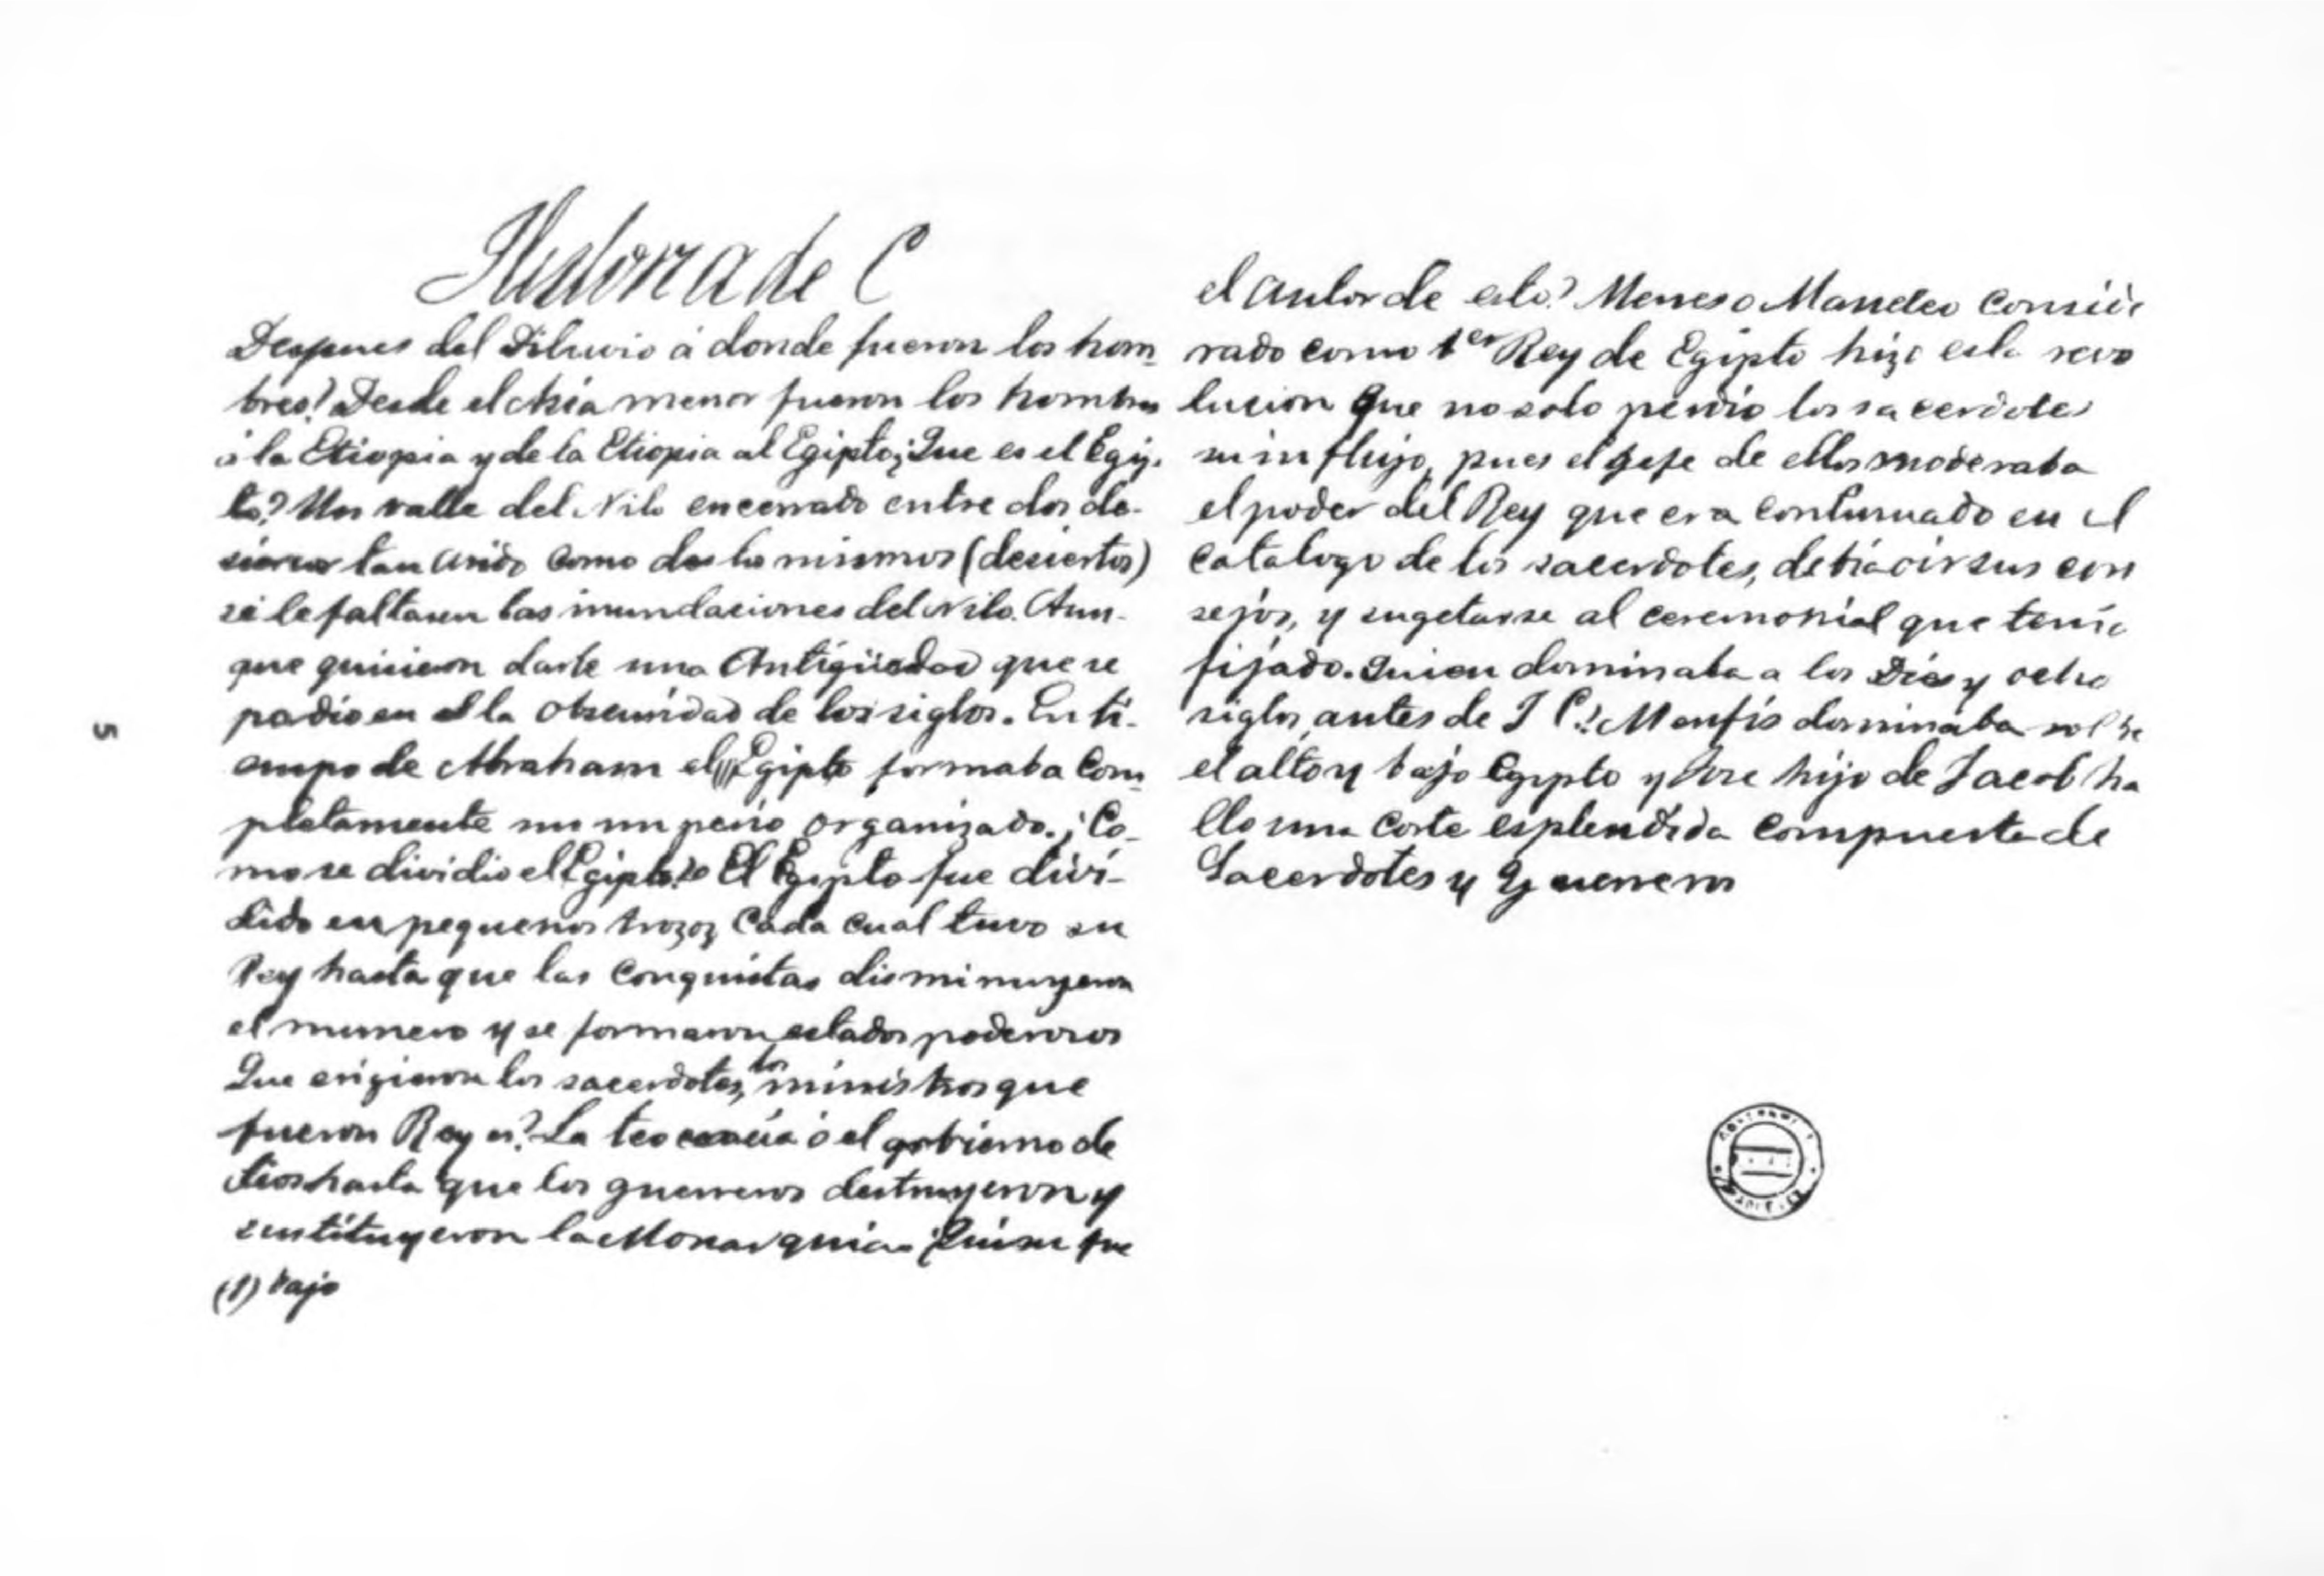 Historia de C
Despues del Diluvio á donde fueron los hom-
bres? Desde el Asia menor fueron los hombres
á la Etiopia y de la Etiopia al Egipto ¿Que es el Egip-
to? Un valle del Nilo encerrado entre dos de-
siertos tan arido como los mismos (desiertos)
si le faltasen las inundaciones del Nilo. Aun-
que quisieron darle una Antigüedad que se
perdio en el la obscuridad de los siglos. En ti-
empo de Abraham el Egipto formaba com-
pletamente un imperio organizado. ¿Co-
mo se dividio el Egipto? El Egipto fue divi-
dido en pequenos trozoz cada cual tuvo su
Rey hasta que las conquistas disminuyeron
el numero y se formaron estados poderosos
Que erigieron los sacerdotes, los ministros que
fueron Reyes? La teocracia ó el gobierno de
dios hasta que los guerreros destruyeron y
sustituyeron la Monarquia. ¿Quien fue
(1) bajo
el autor de esto? Menes o Maneteo conside
rado como 1er Rey de Egipto hizo esta revo
lucion que no solo perdio los sacerdotes
su influjo, pues el gefe de ellos moderaba
el poder del Rey que era continuado en el
catalogo de los sacerdotes, debia oir sus con
sejos, y sugetarse al ceremonial que tenia
fijado. Quien dominaba a los Dies y ocho
siglos antes de J C? Menfis dominaba sobre
el alto y bajo Egypto y Jose hijo de Jacob ha
llo una corte esplendida compuesta de
Sacerdotes y Guerreros
5